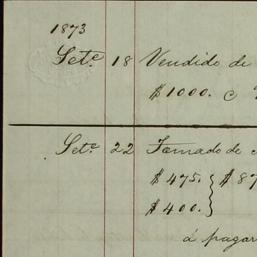 1873
Sete 18 Vendido de
$1000. c
Sete 22 Tomado de
$475. } $87
$400. }
á pagar